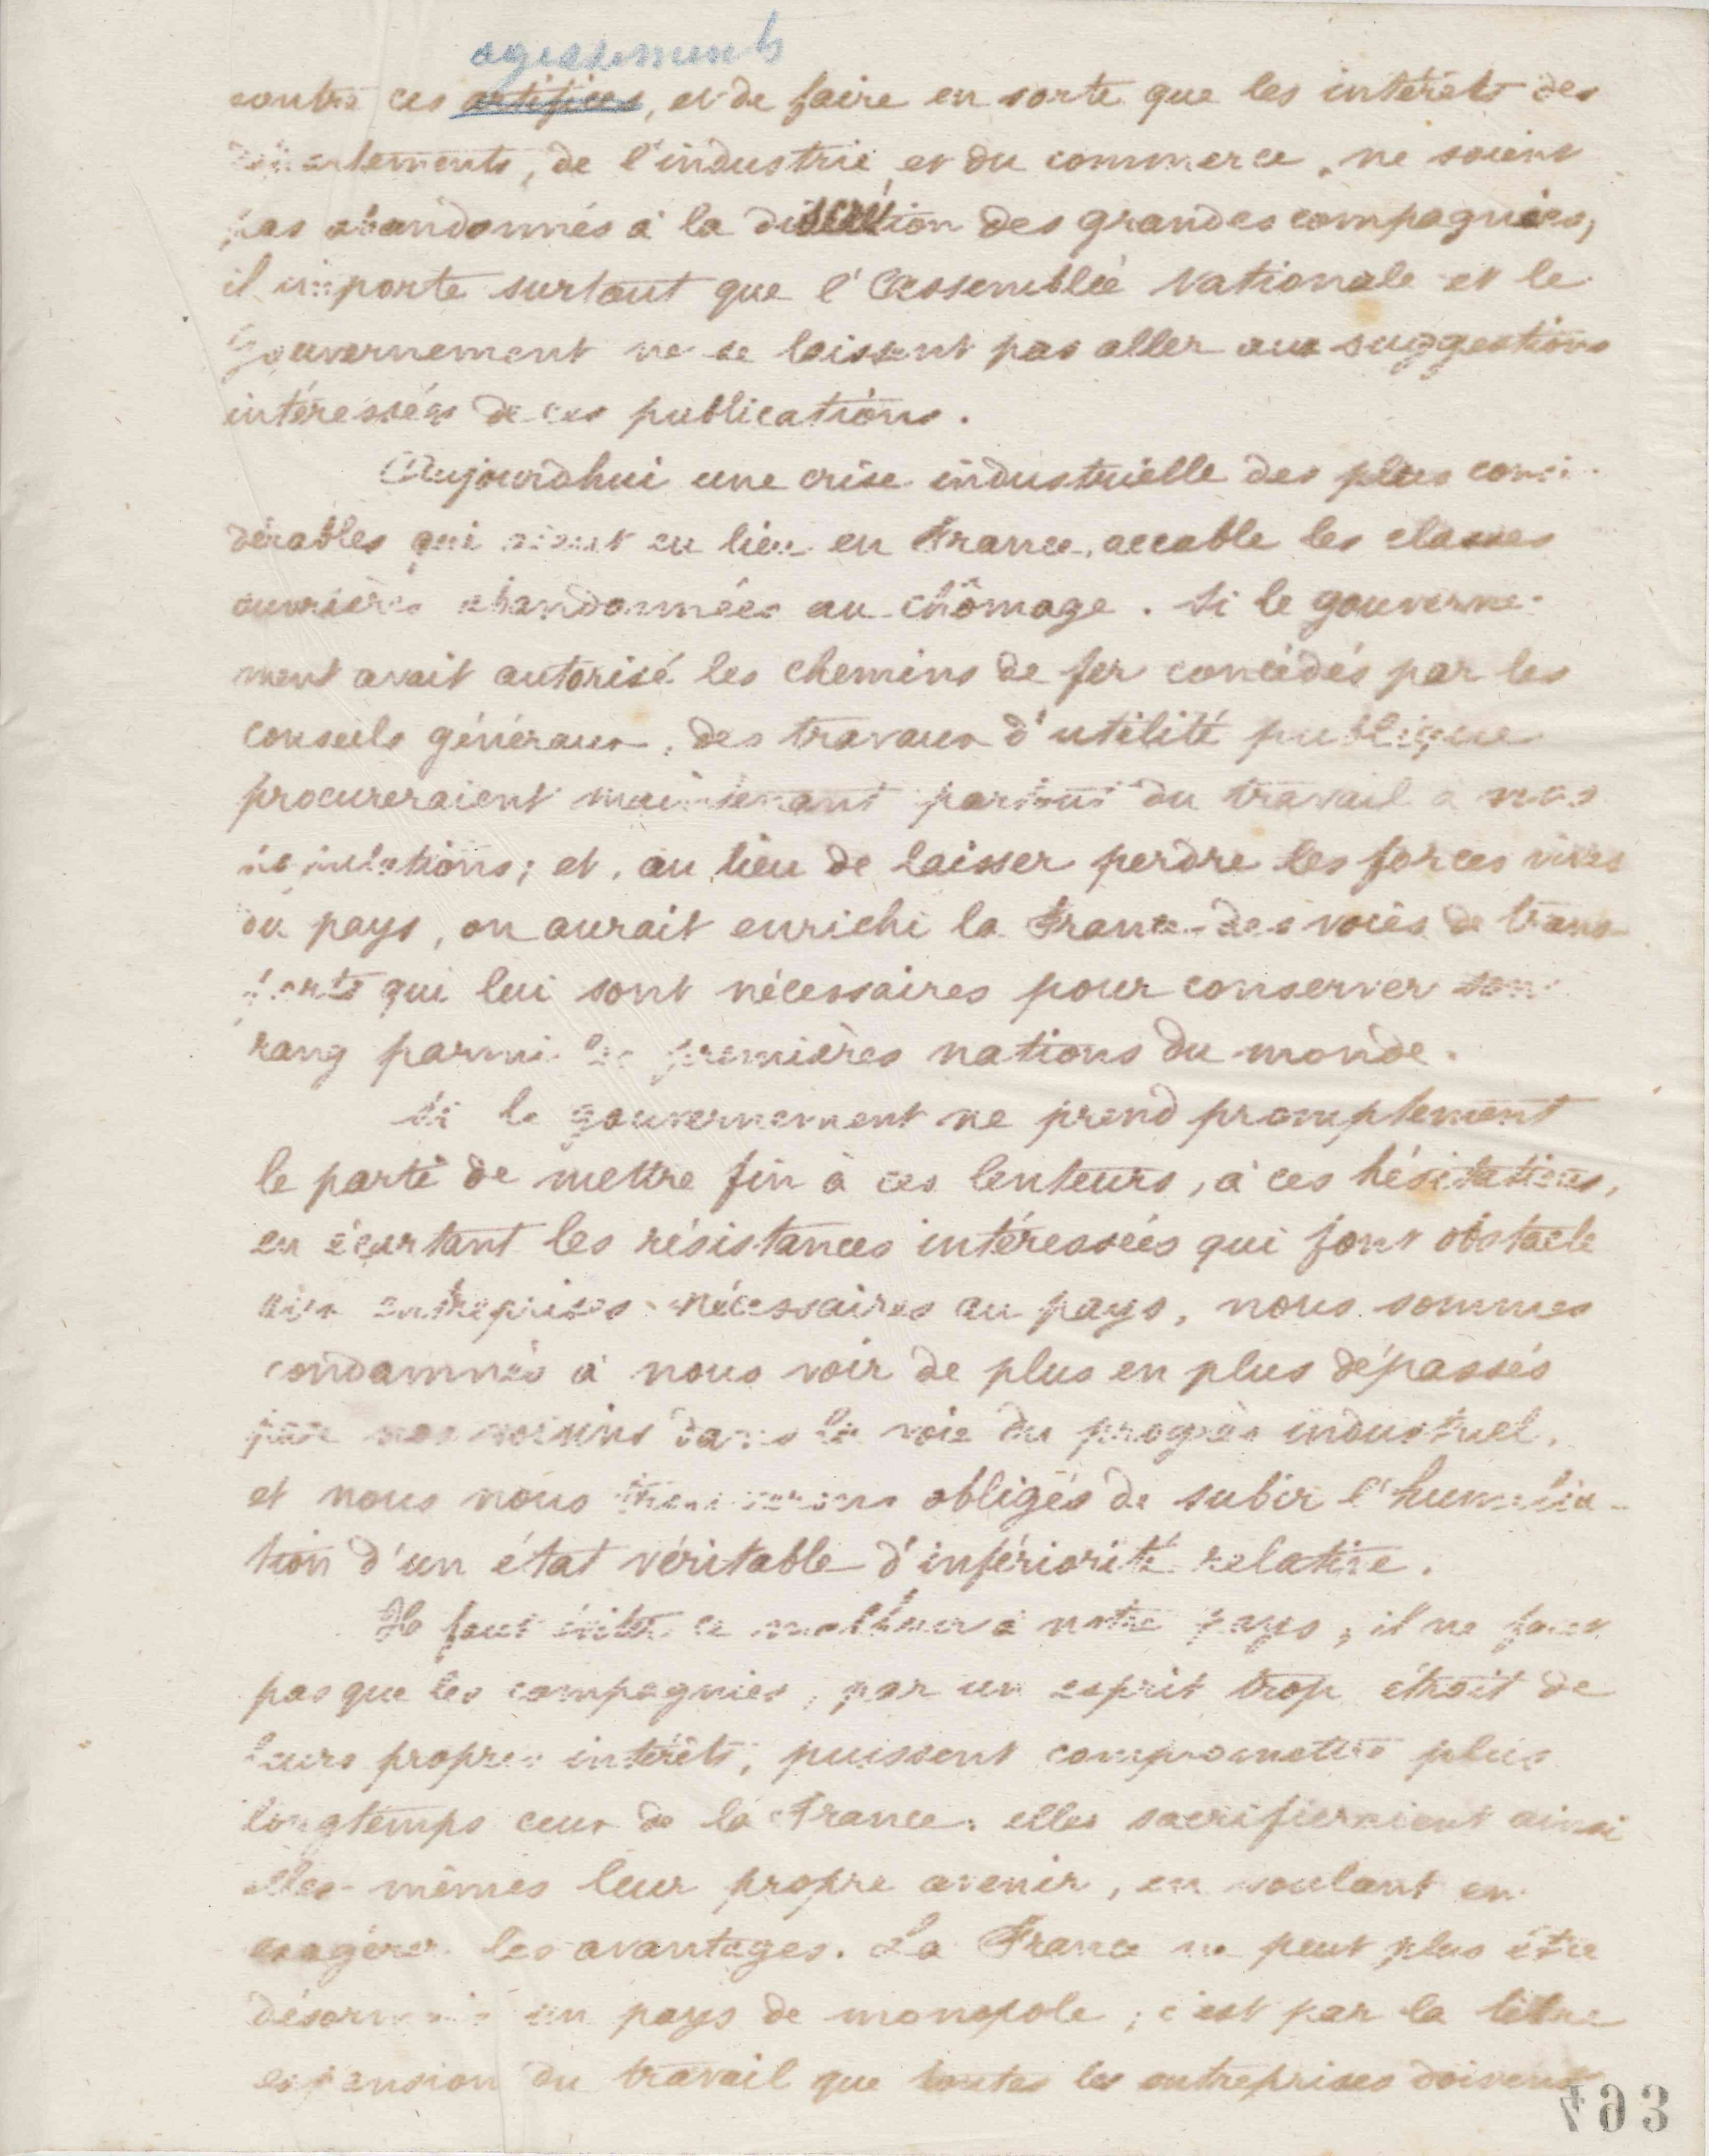 agissements
contre ces artifices, et de faire en sorte que les intérêts des
départements, de l'industrie et du commerce, ne soient
pas abandonnés à la discrétion des grandes compagnies,
il importe surtout que l'Assemblée Nationale et le
Gouvernement ne se laissent pas aller aux suggestions
intéressées de ces publications.
Aujourdhui une crise industrielle des plus consi-
dérables qui aient eu lieu en France, accable les classes
ouvrières abandonnées au chômage. Si le gouverne-
ment avait autorisé les chemins de fer concédés par les
conseils généraux, des travaux d'utilité publique
procureraient maintenant partout du travail à nos
populations; et, au lieu de laisser perdre les forces vives
du pays, on aurait enrichi la France des voies de trans-
ports qui lui sont nécessaires pour conserver son
rang parmi les premières nations du monde.
Si le gouvernement ne prend promptement
le parti de mettre fin à ces lenteurs, à ces hésitations,
en écartant les résistances intéressées qui font obstacle
aux entreprises nécessaires au pays, nous sommes
condamnés à nous voir de plus en plus dépassés
par nos voisins dans la voie du progrès industriel,
et nous nous trouverons obligés de subir l'humilia-
tion d'un état véritable d'infériorité relative.
Il faut éviter ce malheur à notre pays; il ne faut
pas que les compagnies, par un esprit trop étroit de
leurs propres intérêts, puissent compromettre plus
longtemps ceux de la France: elles sacrifieraient ainsi
elles-mêmes leur propre avenir, en voulant en
exagérer les avantages. La France ne peut plus être
désormais un pays de monopole; c'est par la libre
expansion du travail que toutes les entreprises doivent